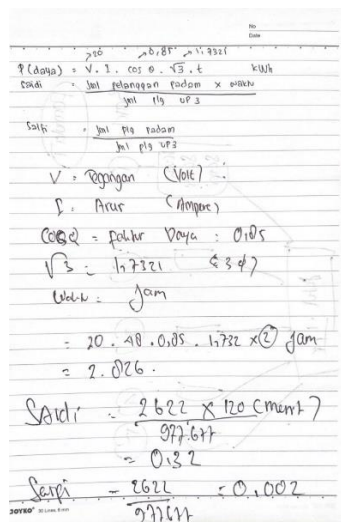 No
Date
20 0,85 1,7321
P (daya) = V. I. cos θ. √3. t kWh
Saidi = Jml pelanggan padam x waktu
Jml plg UP3
Saifi = Jml plg padam
Jml plg UP3
V = Tegangan (Volt).
I = Arus (Ampere)
Cos Q = faktor Daya : 0,85
√3 = 1,7321
Waktu : Jam
= 20 . 48 . 0,85 . 1,732 x 2 Jam
= 2.826.
SAIDI = 2622 x 120 (menit)
977.677
= 0,32
Saifi = 2622 = 0,002
977677
JOYKO 30 Lines, 8 mm